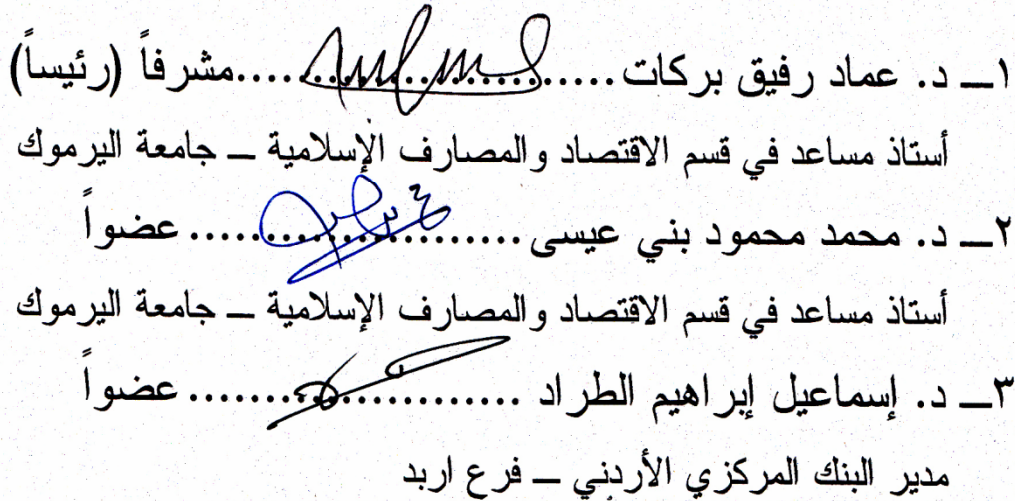 ١ــ د. عماد رفيق بركات ........................ مشرفاً (رئيساً)
أستاذ مساعد في قسم الاقتصاد والمصارف الإسلامية ــ جامعة اليرموك
٢ــ د. محمد محمود بني عيسى ........................ عضواً
أستاذ مساعد في قسم الاقتصاد والمصارف الإسلامية ــ جامعة اليرموك
٣ــ د. إسماعيل إبراهيم الطراد ........................ عضواً
مدير البنك المركزي الأردني ــ فرع اربد